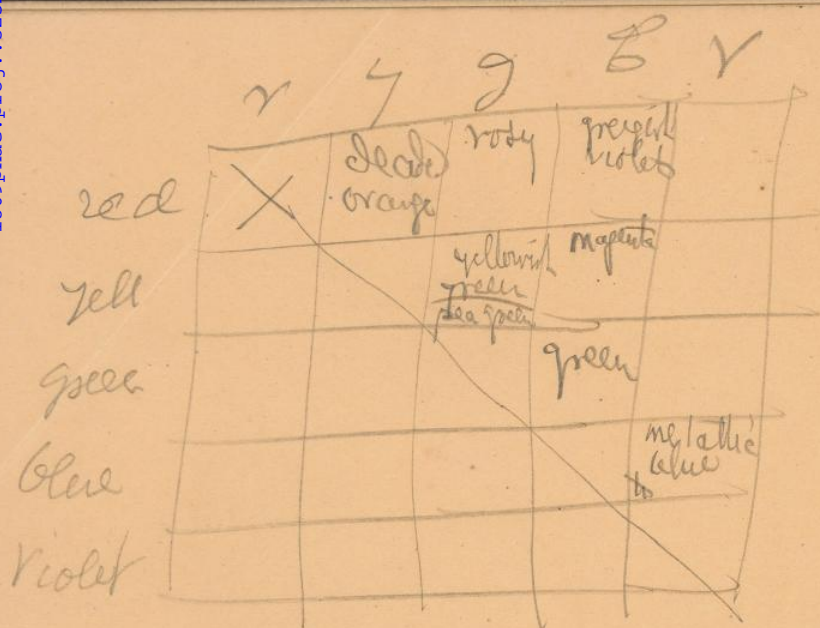 r y g b V
red
decided orange
rosy
greyish violet
yell
yellowish green
sea green
magenta
green
green
blue
metallic blue
violet